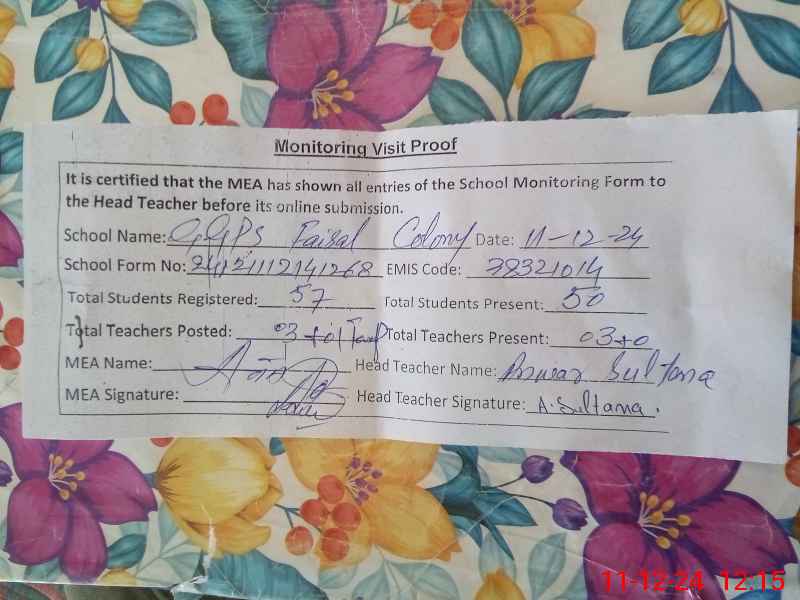 Monitoring Visit Proof
It is certified that the MEA has shown all entries of the School Monitoring Form to
the Head Teacher before its online submission.
School Name: GGPS Faisal Colony Date: 11-12-24
School Form No: EMIS Code: 38321014
Total Students Registered: 57 Total Students Present: 50
Total Teachers Posted: 03+01 Total Teachers Present: 03+0
MEA Name: Head Teacher Name: Anwar Sultana
MEA Signature: Head Teacher Signature: A. Sultana.
11-12-24 12:15